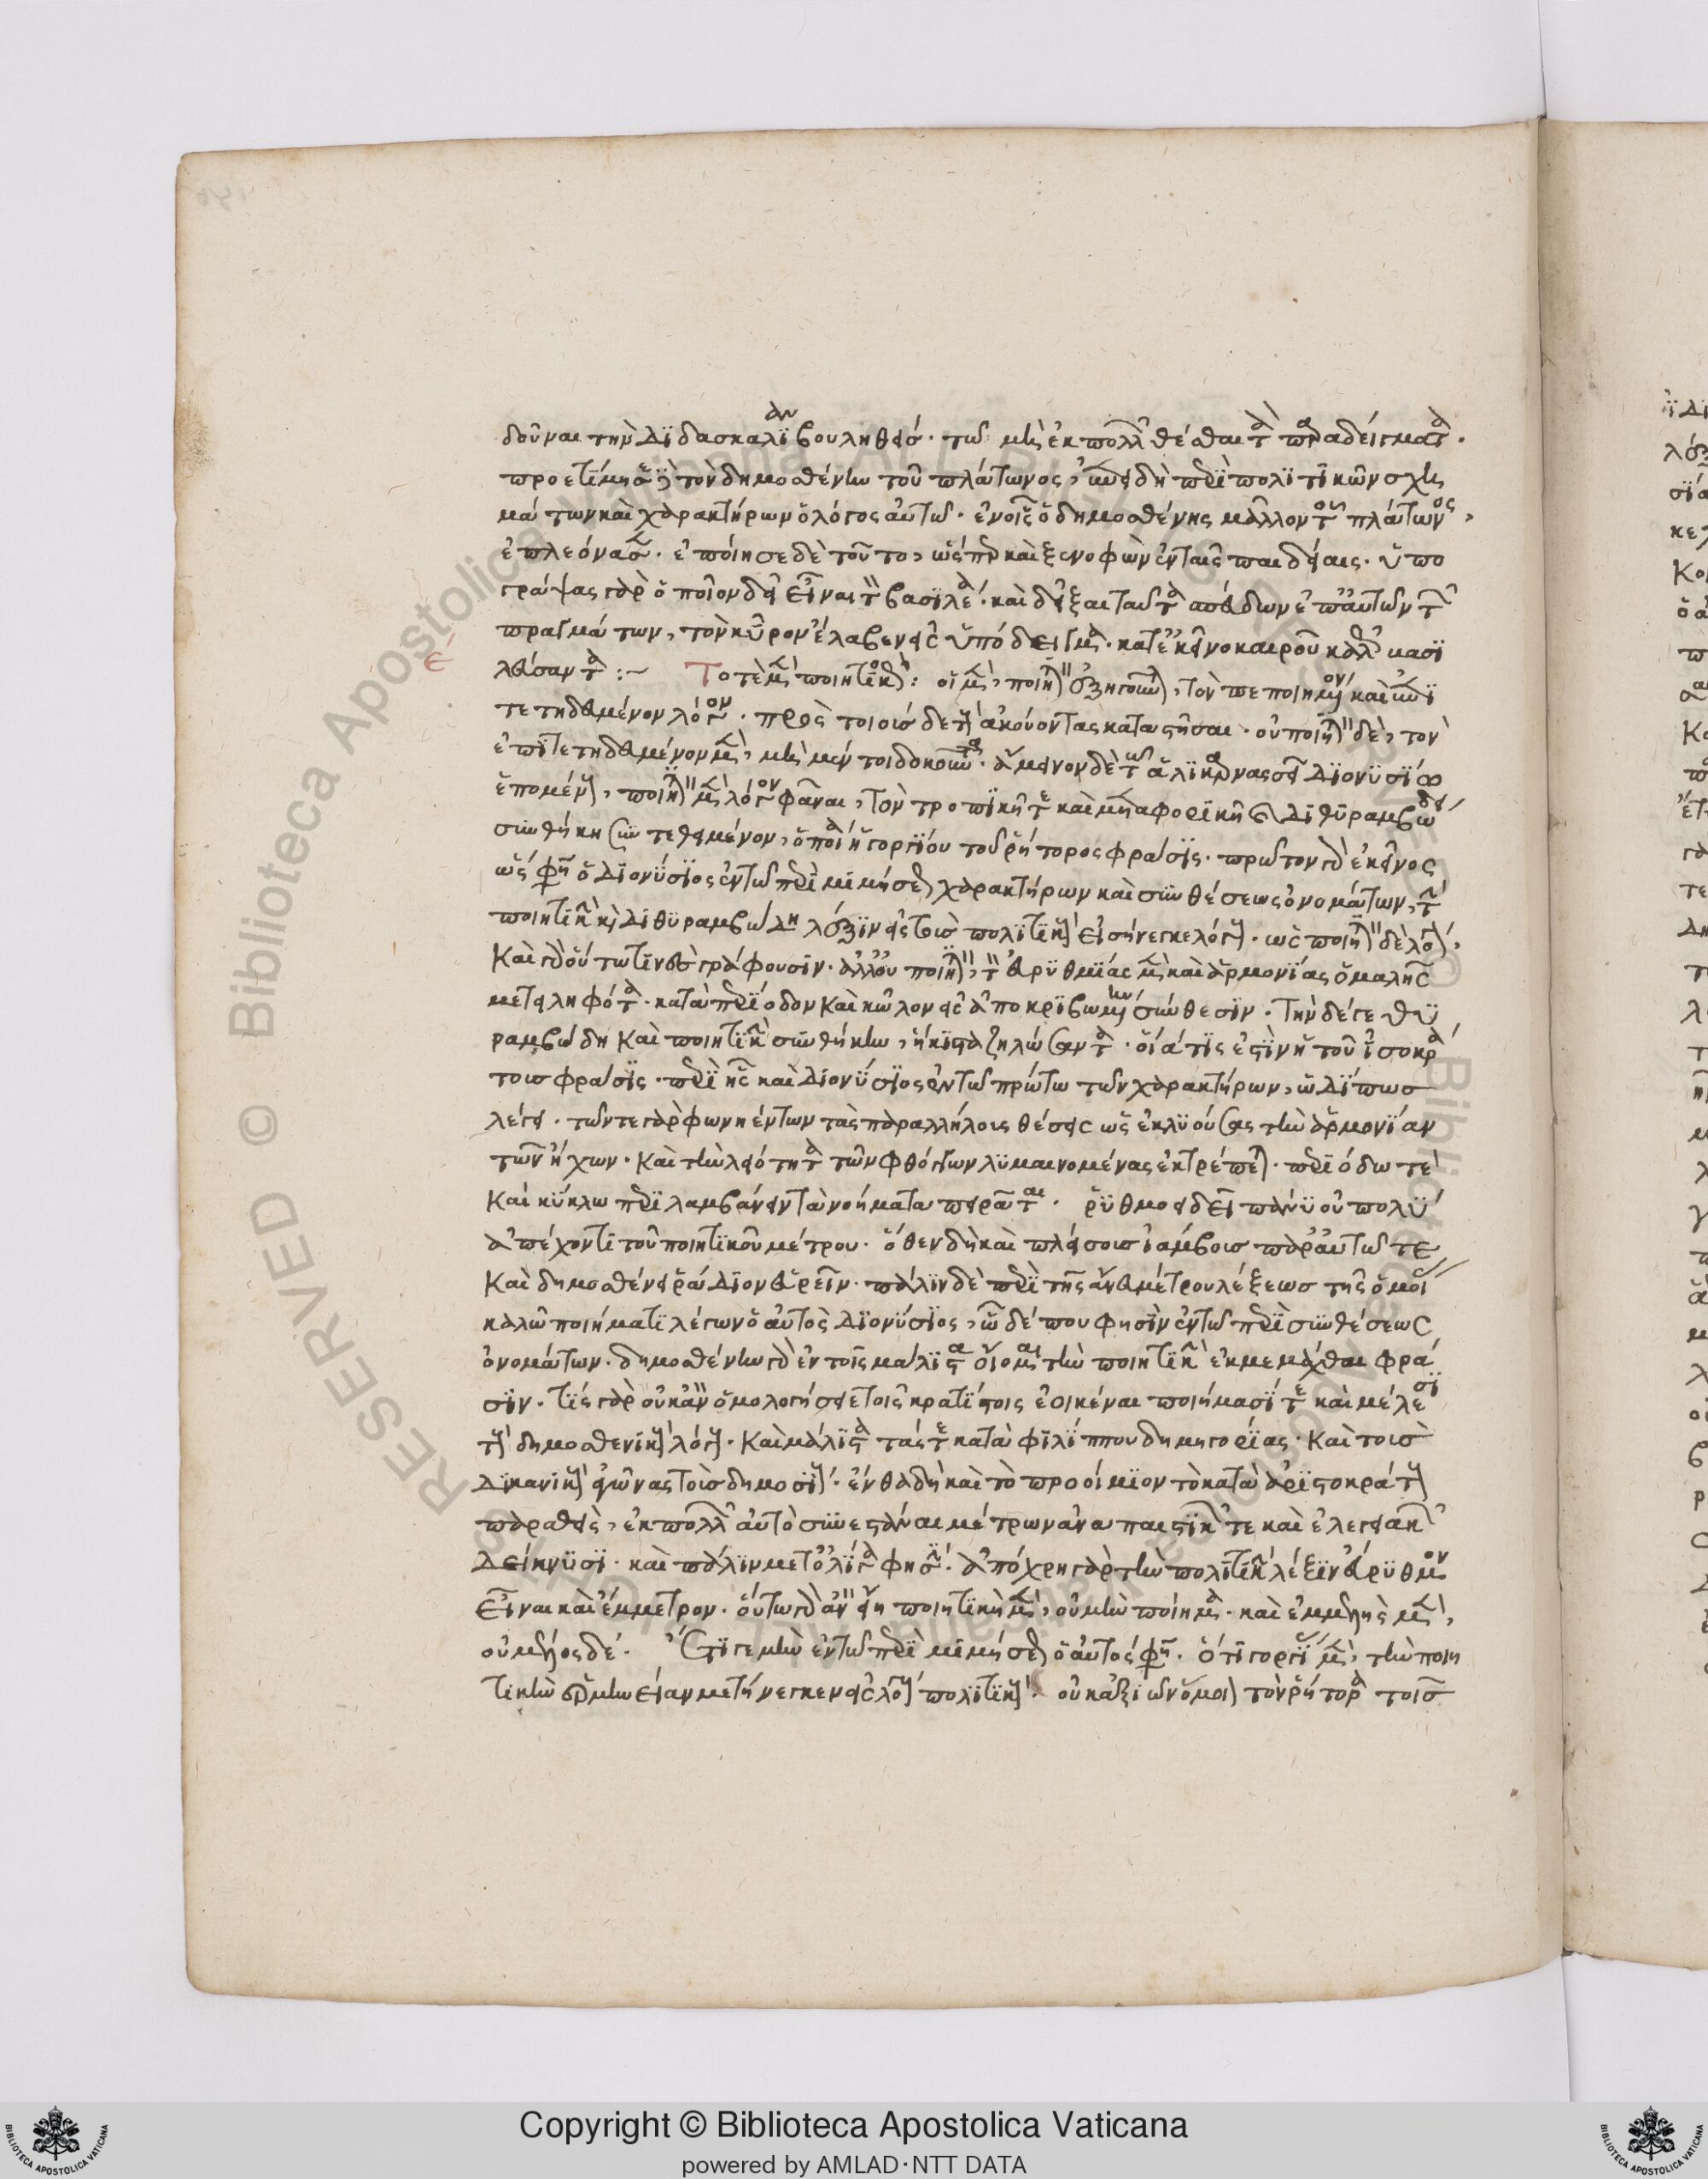 δοῦναι τὴν διδασκαλίαν βουληθείς. τῶ μὴ ἐκ πολλῶν θέσθαι τὰ παραδείγματα.
προετίμησε τὸν δημοσθένην τοῦ πλάτωνος, ἐπειδὴ περὶ πολιτικῶν σχη
μάτων καὶ χαρακτήρων ὁ λόγος αὐτῶ. ἐν οἷς ὁ δημοσθένης μᾶλλον τοῦ πλάτωνος,
ἐπλεόνασεν. ἐποίησε δὲ τοῦτο, ὥσπερ καὶ ξενοφῶν ἐν ταῖς παιδείαις. ὑπο
γράψας γὰρ ὁποῖον δεῖ εἶναι τὸν βασιλέα. καὶ δεῖξαι ταῦτα σπεύδων ἐπ' αὐτῶν τῶν
πραγμάτων, τὸν κῦρον ἔλαβεν εἰς ὑπόδειγμα. κατ' ἐκεῖνο καιροῦ καλῶς βασι
λεύσαντα :~ Το τὲ μὲν ποιητικὸν: οἱ μὲν, ποιητικὸν ἐξηγοῦνται, τὸν πεποιημένον καὶ
τετηδευμένον λόγον. πρὸς τοιοῖσδε τοὺς ἀκούοντας καταστῆσαι. οὐ ποιητικὸν δὲ, τὸν
ἐπιτετηδευμένον μὲν, μὴ μέντοι δοκοῦντα. ἄμεινον δὲ τῶ ἁλικαρνασεῖ διονυσίω
ἑπομένους, ποιητικὸν μὲν λόγον φᾶναι, τὸν τροπικῆ τε καὶ μεταφορικῆ καὶ διθυραμβώδει
συνθήκη συντεθειμένον, ὁποία ἡ γοργίου τοῦ ῥήτορος φράσις. πρῶτον γὰρ ἐκεῖνος
ὥς φησιν ὁ διονύσιος ἐν τῶ περὶ μιμήσεως χαρακτήρων καὶ συνθέσεως ὀνομάτων, τὴν
ποιητικὴν καὶ διθυραμβώδη λέξιν εἰς τοὺς πολιτικοὺς εἰσήνεγκε λόγους. ὡς ποιητικὸν δὲ λόγον,
Καὶ γὰρ οὕτω τινὲς γράφουσιν. ἀλλ' οὐ ποιητικὸν, τὸν εὐρυθμίας μὲν καὶ ἁρμονίας ὁμαλῆς
μετειληφότα. κατὰ περίοδον καὶ κῶλον εἰς ἀπηκριβωμένην σύνθεσιν. τὴν δέ γε διθυ
ραμβώδη καὶ ποιητικὴν συνθήκην, ἥκιστα ζηλώσαντα. οἵα τίς ἐστιν ἡ τοῦ ἰσοκρά
τους φράσις. περὶ ἧς καὶ διονύσιος ἐν τῶ πρώτω τῶν χαρακτήρων, ὧδί πως
λέγει. τῶν τε γὰρ φωνηέντων τὰς παραλλήλους θέσεις ὡς ἐκλυούσας τὴν ἁρμονίαν
τῶν ἤχων. καὶ τὴν λειότητα τῶν φθόγγων λυμαινομένας ἐκτρέπεται. περιόδω τὲ
Καὶ κύκλω περιλαμβάνειν τὰ νοήματα πειρᾶται. ῥυθμοειδεῖ πάνυ οὐ πολὺ
ἀπέχοντι τοῦ ποιητικοῦ μέτρου. ὅθεν δὴ καὶ πλείσους ἰάμβους παρ' αὐτῶ τε
Καὶ δημοσθένει ῥάδιον εὑρεῖν. πάλιν δὲ περὶ τῆς ἄνευ μέτρου λέξεως τῆς ὁμοίας
καλῶ ποιήματι λέγων ὁ αὐτὸς διονύσιος, ὧδέ που φησὶν ἐν τῶ περὶ συνθέσεως
ὀνομάτων. δημοσθένην γὰρ ἐν τοῖς μάλιστα οἴομαι τὴν ποιητικὴν ἐκμεμάχθαι φρά
σιν. τίς γὰρ οὐκ ἂν ὁμολογήσειε τοῖς κρατίστοις ἐοικέναι ποιήμασί τε καὶ μέλεσι
τοὺς δημοσθενικοὺς λόγους. καὶ μάλιστα τάς τε κατὰ φιλίππου δημηγορίας. καὶ τοὺς
δικανικοὺς ἀγῶνας τοὺς δημοσίους. ἔνθα δὴ καὶ τὸ προοίμιον τὸ κατὰ ἀριστοκράτους
παραθεὶς, ἐκ πολλῶν αὐτὸ συνεστάναι μέτρων ἀναπαιστικῶν τε καὶ ἐλεγειακῶν
δείκνυσι. καὶ πάλιν μετ' ὀλίγα φησίν. ἀπόχρη γὰρ τὴν πολιτικὴν λέξιν εὔρυθμον
εἶναι καὶ ἔμμετρον. οὕτω γὰρ ἂν εἴη ποιητικὴ μὲν, οὐ μὴν ποίημα. καὶ ἐμμελὴς μὲν,
οὐ μέλος δέ. Ἔτι γε μὴν ἐν τῶ περὶ μιμήσεως ὁ αὐτός φησιν. ὅτι γοργίας μὲν, τὴν ποιη
τικὴν ἑρμηνείαν μετήνεγκεν εἰς λόγους πολιτικούς. οὐκ ἀξιῶν ὅμοιον τὸν ῥήτορα τοῖς